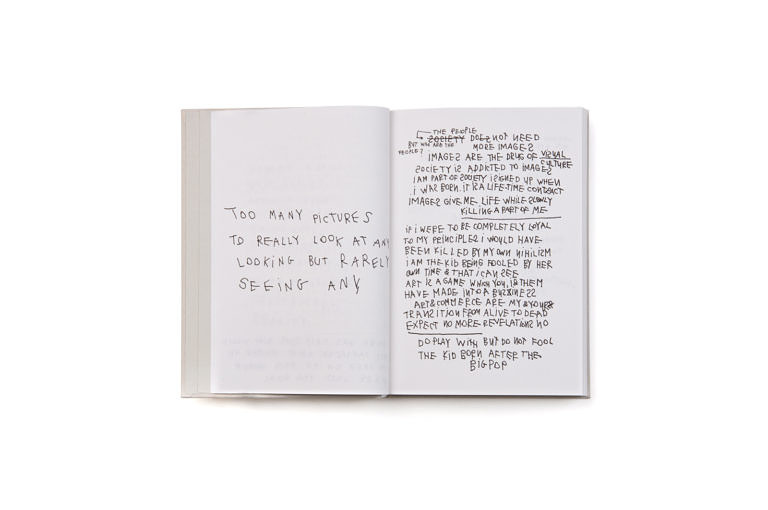 TOO MANY PICTURES
TO REALLY LOOK AT ANY
LOOKING BUT RARELY
SEEING ANY
THE PEOPLE
SOCIETY DOES NOT NEED
BUT WHO ARE THE
PEOPLE?
MORE IMAGES
IMAGES ARE THE DRUG OF VISUAL
CULTURE
SOCIETY IS ADDICTED TO IMAGES
I AM PART OF SOCIETY I SIGNED UP WHEN
I WAS BORN. IT IS A LIFE-TIME CONTRACT
IMAGES GIVE ME LIFE WHILE SLOWLY
KILLING A PART OF ME
IF I WERE TO BE COMPLETELY LOYAL
TO MY PRINCIPLES I WOULD HAVE
BEEN KILLED BY MY OWN NIHILISM
I AM THE KID BEING FOOLED BY HER
OWN TIME & THAT I CAN SEE
ART IS A GAME WHICH YOU, I & THEM
HAVE MADE INTO A BUSINESS
ART & COMMERCE ARE MY & YOURS
TRANSITION FROM ALIVE TO DEAD
EXPECT NO MORE REVELATIONS NO
DO PLAY WITH BUT DO NOT FOOL
THE KID BORN AFTER THE
BIG POP